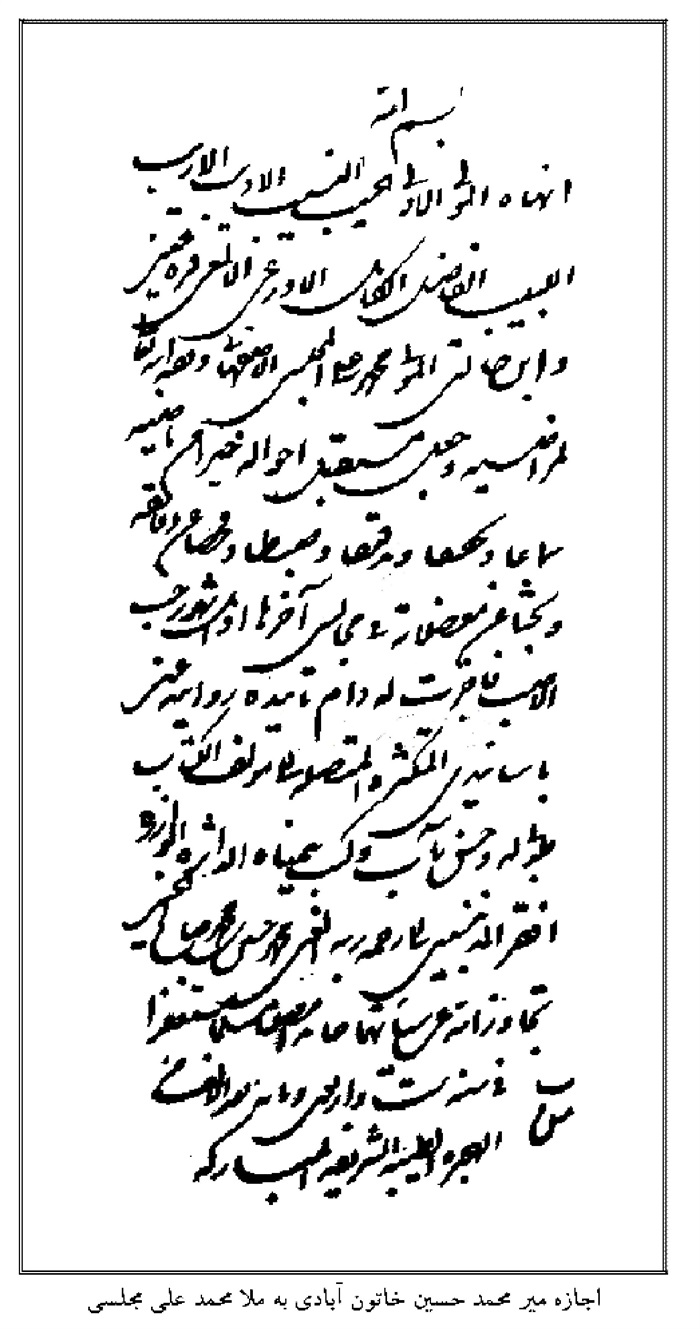 بسم الله
انهاه المولی الاولی الحسیب النسیب الادیب الاریب
اللبیب الفاضل الکامل الاورعی الالمعی قرة عینی
وابن خالتی المولی محمد علی المجلسی الاصفهانی وفقه الله
لمراضیه وجعل مستقبل احواله خیرا من ماضیه
سماعا وتدقیقا وضبطا
وبحثا عن معضلاته فی مجالس آخرها اواسط شهر رجب
الاصب فاجزت له دام تاییده روایته عنی
باسانیدی المتکثرة المتصلة الی مؤلف الکتاب
طوبی له وحسن مآب وکتب بیمناه الداثرة الوازرة
افقر المذنبین الی رحمة ربه الغنی محمد حسین بن محمد صالح الحسینی
تجاوز الله عن سیئاتهما حامدا مصلیا مسلما مستغفرا
فی سنة ست واربعین ومائة بعد الالف من
الهجرة الطیبة الشریفة المبارکه
اجازه میر محمد حسین خاتون آبادی به ملا محمد علی مجلسی